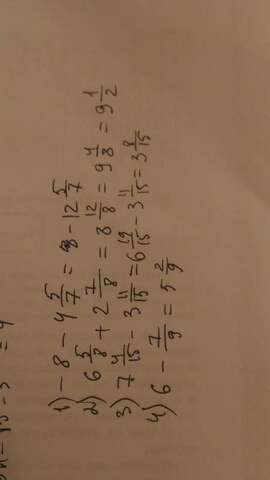 = 4
1) - 8 - 4 5/7 = - 12 5/7
2) 6 5/8 + 2 7/8 = 8 12/8 = 9 4/8 = 9 1/2
3) 7 4/15 - 3 11/15 = 6 19/15 - 3 11/15 = 3 8/15
4) 6 - 7/9 = 5 2/9